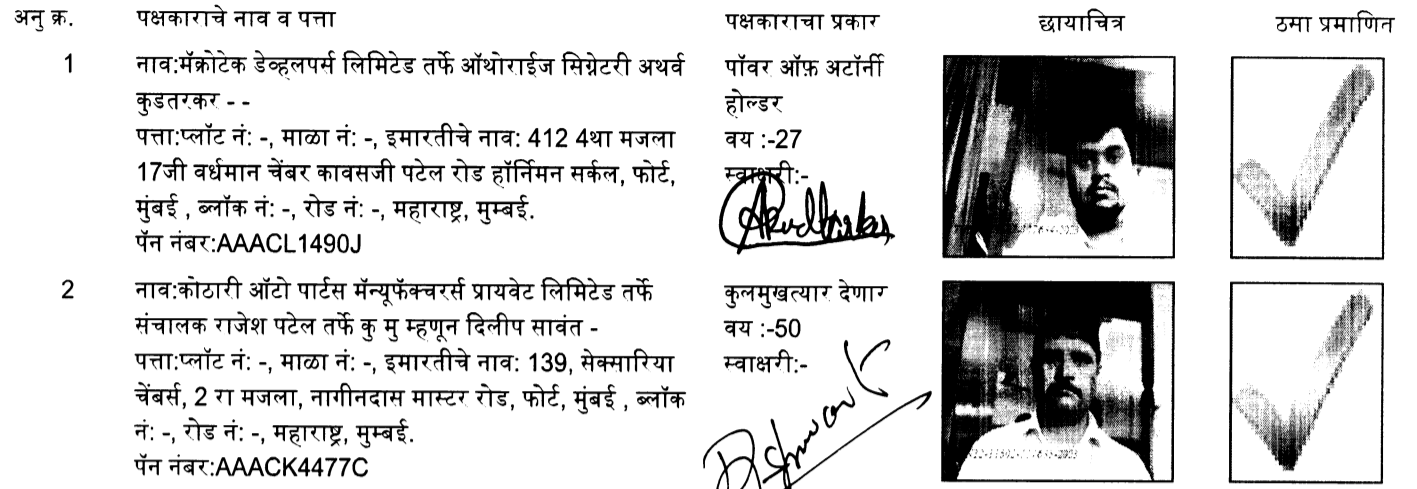 अनु क्र. पक्षकाराचे नाव व पत्ता पक्षकाराचा प्रकार छायाचित्र ठसा प्रमाणित
1 नाव:मॅक्रोटेक डेव्हलपर्स लिमिटेड तर्फे ऑथोराईज सिग्नेटरी अथर्व
कुडतरकर - -
पत्ता:प्लॉट नं: -, माळा नं: -, इमारतीचे नाव: 412 4था मजला
17जी वर्धमान चेंबर कावसजी पटेल रोड हॉर्निमन सर्कल, फोर्ट,
मुंबई , ब्लॉक नं: -, रोड नं: -, महाराष्ट्र, मुम्बई.
पॅन नंबर:AAACL1490J
पॉवर ऑफ़ अटॉर्नी
होल्डर
वय :-27
स्वाक्षरी:-
2 नाव:कोठारी ऑटो पार्टस मॅन्यूफॅक्चरर्स प्रायवेट लिमिटेड तर्फे
संचालक राजेश पटेल तर्फे कु मु म्हणून दिलीप सावंत -
पत्ता:प्लॉट नं: -, माळा नं: -, इमारतीचे नाव: 139, सेक्सारिया
चेंबर्स, 2 रा मजला, नागीनदास मास्टर रोड, फोर्ट, मुंबई , ब्लॉक
नं: -, रोड नं: -, महाराष्ट्र, मुम्बई.
पॅन नंबर:AAACK4477C
कुलमुखत्यार देणार
वय :-50
स्वाक्षरी:-